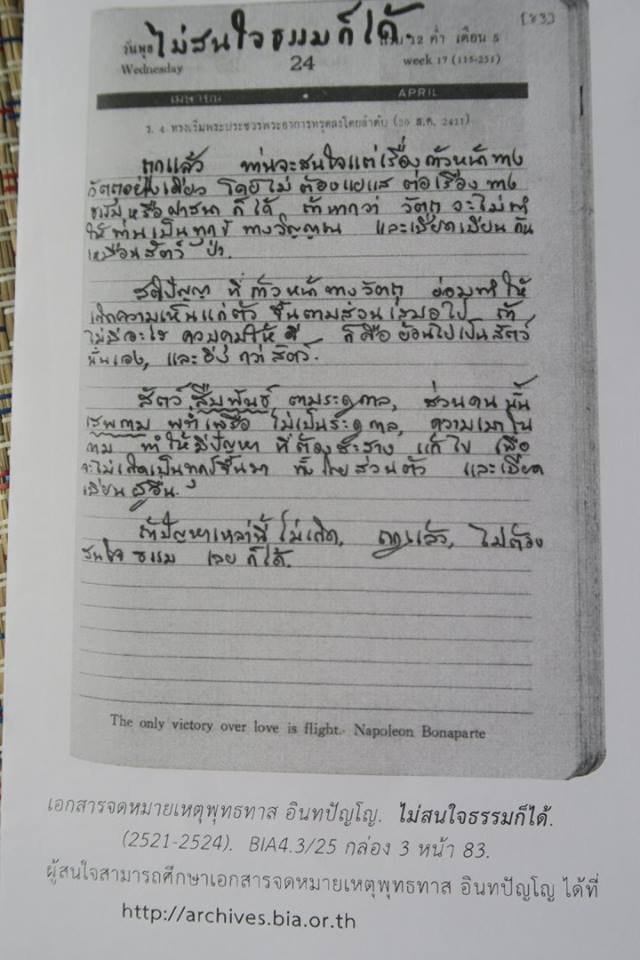 [83]
วันพุธ ไม่สนใจธรรมก็ได้ แรม ๒ ค่ำ เดือน 5
Wednesday 24 week 17 (115-251)
เมษายน • APRIL
ร. 4 ทรงเริ่มพระประชวรพระอาการทรุดลงโดยลำดับ (30 ธ.ค. 2411)
ถูกแล้ว ท่านจะสนใจแต่เรื่องก้าวหน้าทาง
วัตถุอย่างเดียว โดยไม่ต้องแยแส ต่อเรื่องทาง
ธรรม หรือศาสนา ก็ได้ ถ้าหากว่า วัตถุ จะไม่ทำ
ให้ท่านเป็นทุกข์ ทางวิญญาณ และเบียดเบียนกัน
เหมือนสัตว์ ป่า.
สติปัญญา ที่ก้าวหน้าทางวัตถุ ย่อมทำให้
เกิดความเห็นแก่ตัว ขึ้นตามส่วนเสมอไป ถ้า
ไม่มีอะไร ควบคุมให้ดี ก็คือ ย้อนไปเป็นสัตว์
นั่นเอง, และยิ่ง กว่าสัตว์.
สัตว์ สืบพันธุ์ ตามระดูกาล, ส่วนคน นั้น
เสพกาม พร่ำเพรื่อ ไม่เป็นระดูกาล, ความเมาใน
กาม ทำให้มีปัญหา ที่ต้องสะสาง แก้ไข เพื่อ
จะไม่เกิดเป็นทุกข์ขึ้นมา ทั้งโดยส่วนตัว และเบียด
เบียนผู้อื่น.
ถ้าปัญหาเหล่านี้ ไม่เกิด, ถูกแล้ว, ไม่ต้อง
สนใจ ธรรม เลย ก็ได้.
The only victory over love is flight.- Napoleon Bonaparte
เอกสารจดหมายเหตุพุทธทาส อินทปัญโญ. ไม่สนใจธรรมก็ได้.
(2521-2524). BIA4.3/25 กล่อง 3 หน้า 83.
ผู้สนใจสามารถศึกษาเอกสารจดหมายเหตุพุทธทาส อินทปัญโญ ได้ที่
http://archives.bia.or.th